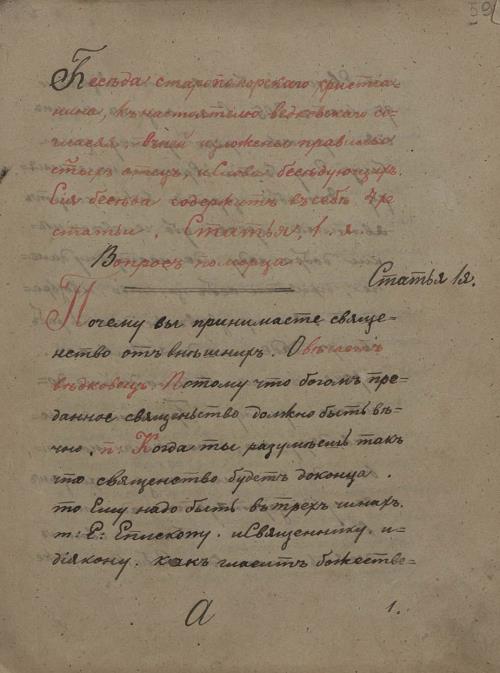 59
Бесѣда старопоморскаго христiа-
нина, къ настоятелю ведковскаго со-
гласия, въ ней изложены правилы
стыхъ отецъ, и Слова бесѣдующихъ.
Сия бесѣда содержитъ въ себѣ 4ре
статьи. Статья, 1. я.
Вопросъ поморца
Статья 1я.
Почему вы принимаете священ-
нство отъ внѣшнихъ. Овѣтетъ
вѣдковецъ Потому что богомъ пре-
данное священьство должно быть вѣ-
чно. п: Когда ты разумѣешь такъ
что священство будетъ доконца.
то Ему надо быть въ трехъ чинахъ.
т: Е: Епископу. и Священнику. и
дiякону. какъ гласитъ божестве-
а 1.